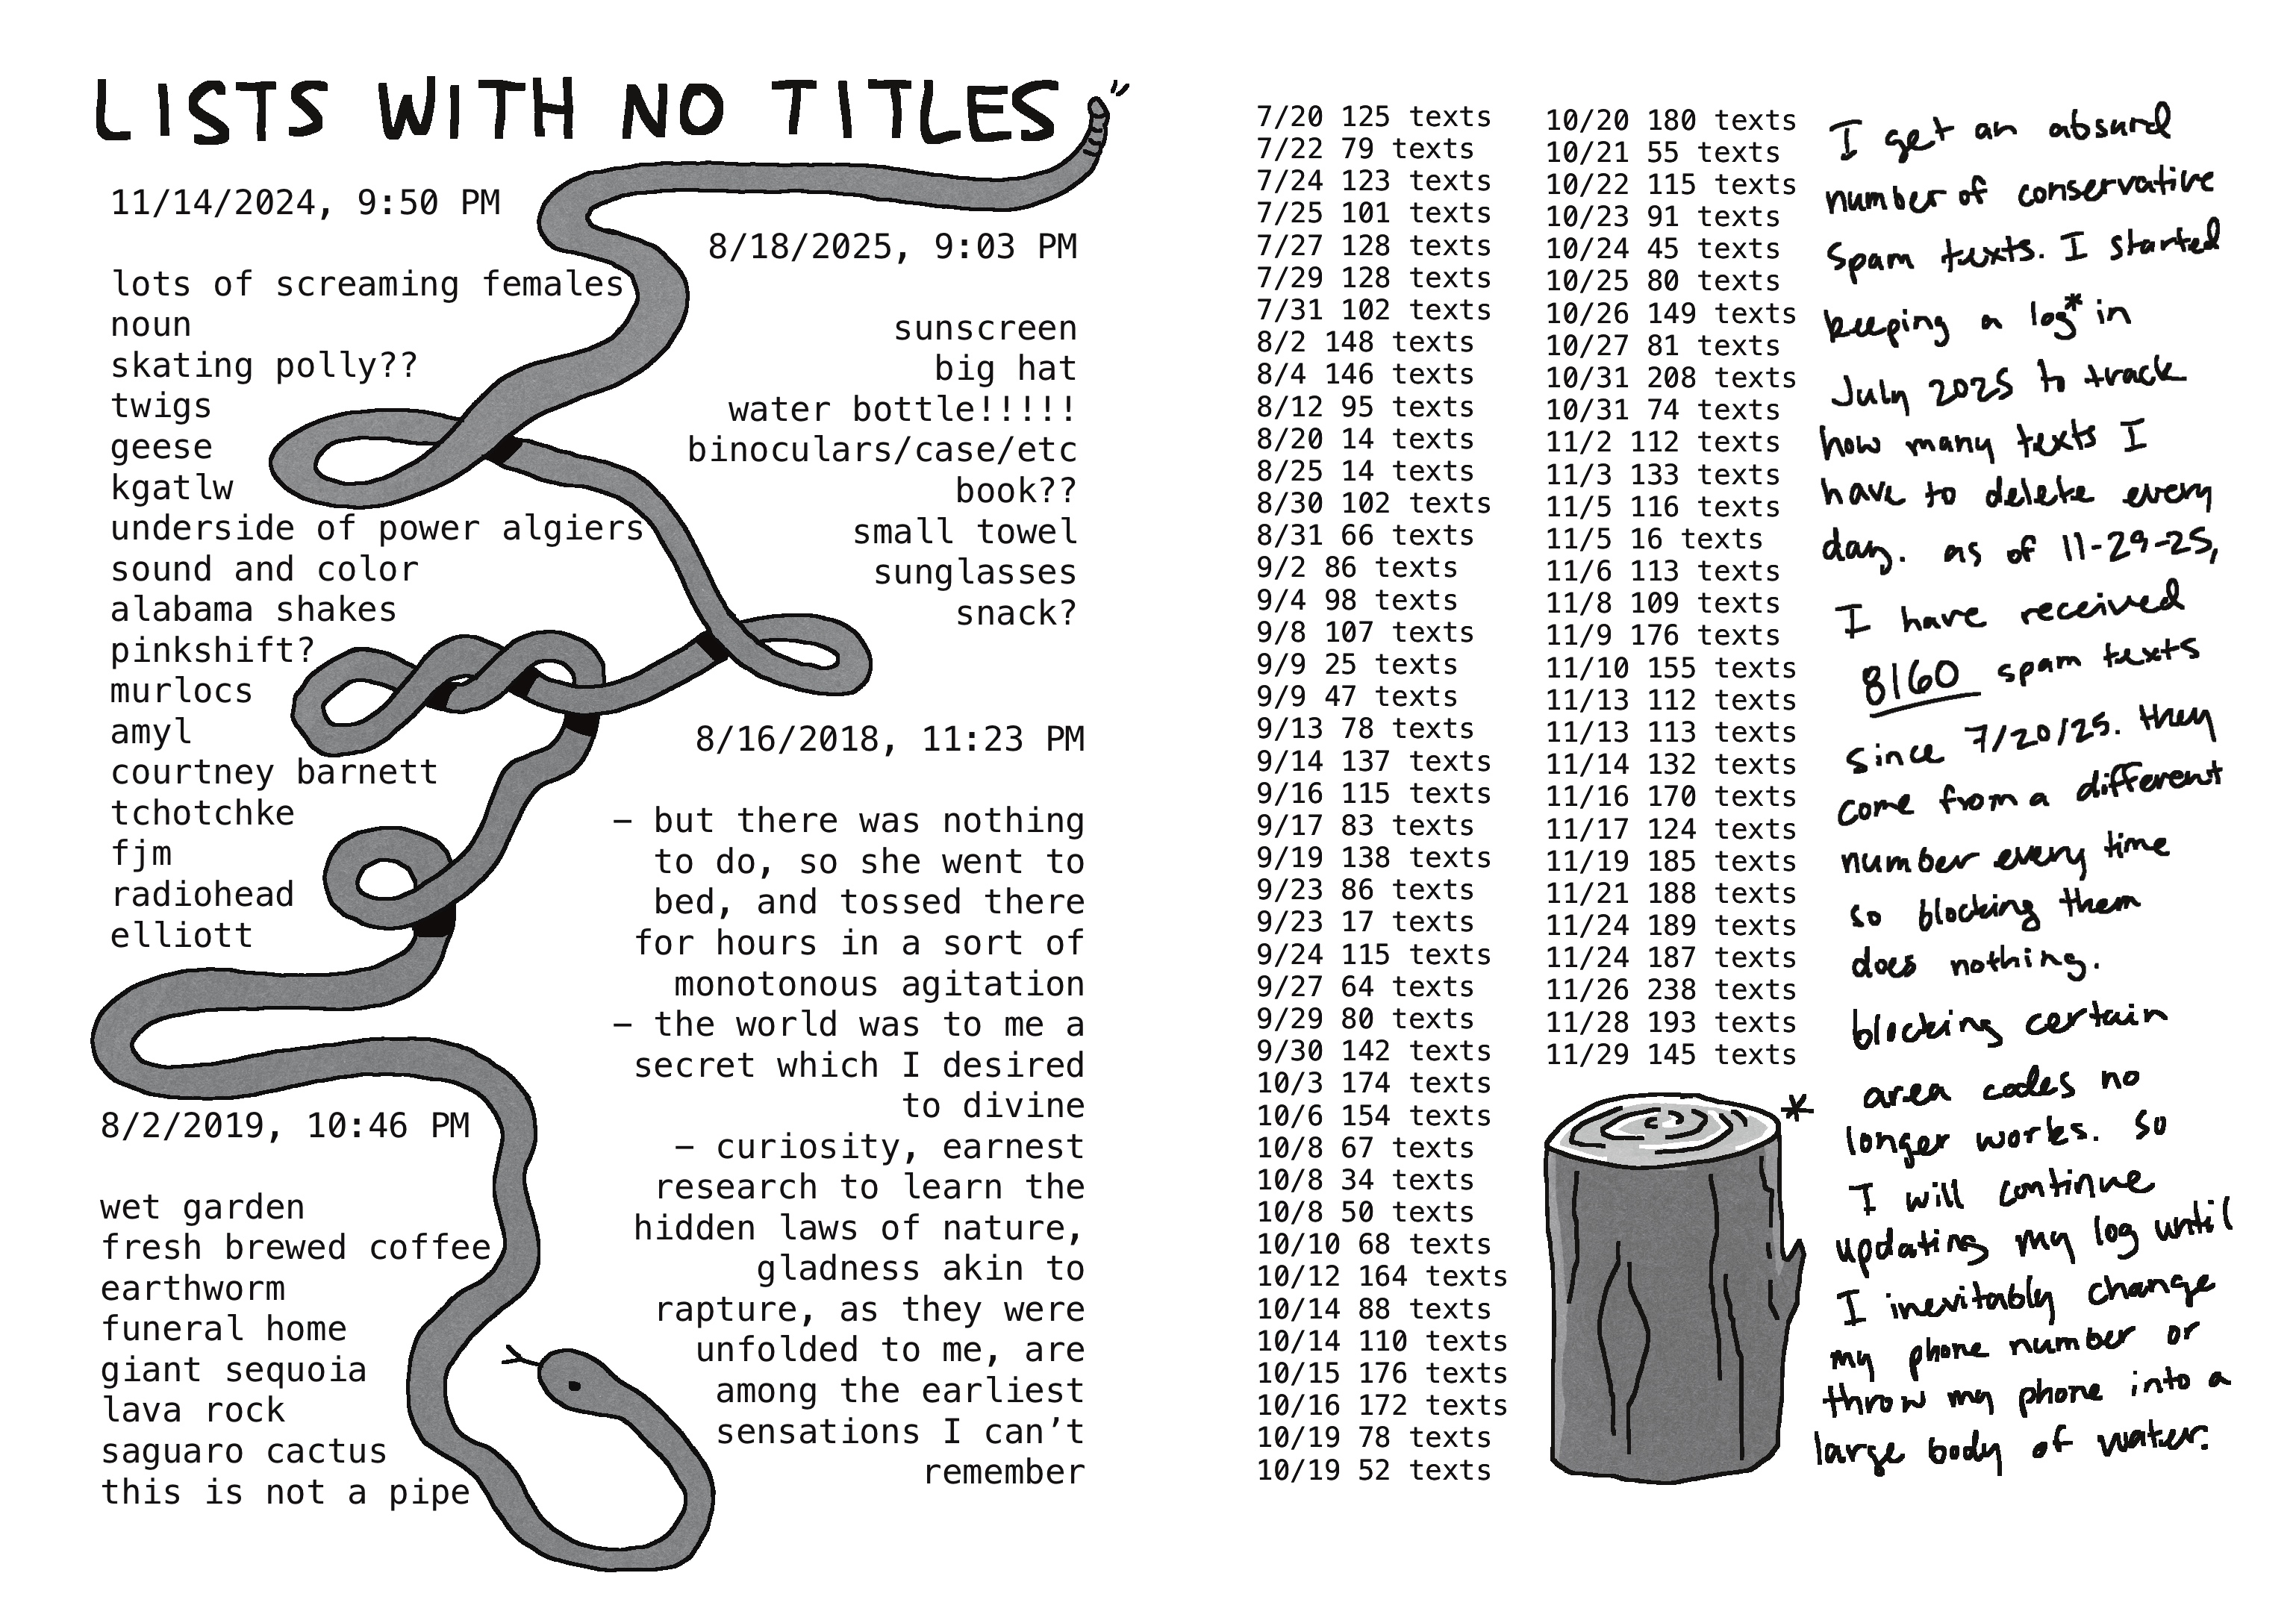 LISTS WITH NO TITLES
11/14/2024, 9:50 PM
lots of screaming females
noun
skating polly??
twigs
geese
kgatlw
underside of power algiers
sound and color
alabama shakes
pinkshift?
murlocs
amyl
courtney barnett
tchotchke
fjm
radiohead
elliott
8/18/2025, 9:03 PM
sunscreen
big hat
water bottle!!!!!
binoculars/case/etc
book??
small towel
sunglasses
snack?
8/16/2018, 11:23 PM
– but there was nothing
to do, so she went to
bed, and tossed there
for hours in a sort of
monotonous agitation
– the world was to me a
secret which I desired
to divine
– curiosity, earnest
research to learn the
hidden laws of nature,
gladness akin to
rapture, as they were
unfolded to me, are
among the earliest
sensations I can’t
remember
8/2/2019, 10:46 PM
wet garden
fresh brewed coffee
earthworm
funeral home
giant sequoia
lava rock
saguaro cactus
this is not a pipe
7/20 125 texts
7/22 79 texts
7/24 123 texts
7/25 101 texts
7/27 128 texts
7/29 128 texts
7/31 102 texts
8/2 148 texts
8/4 146 texts
8/12 95 texts
8/20 14 texts
8/25 14 texts
8/30 102 texts
8/31 66 texts
9/2 86 texts
9/4 98 texts
9/8 107 texts
9/9 25 texts
9/9 47 texts
9/13 78 texts
9/14 137 texts
9/16 115 texts
9/17 83 texts
9/19 138 texts
9/23 86 texts
9/23 17 texts
9/24 115 texts
9/27 64 texts
9/29 80 texts
9/30 142 texts
10/3 174 texts
10/6 154 texts
10/8 67 texts
10/8 34 texts
10/8 50 texts
10/10 68 texts
10/12 164 texts
10/14 88 texts
10/14 110 texts
10/15 176 texts
10/16 172 texts
10/19 78 texts
10/19 52 texts
10/20 180 texts
10/21 55 texts
10/22 115 texts
10/23 91 texts
10/24 45 texts
10/25 80 texts
10/26 149 texts
10/27 81 texts
10/31 208 texts
10/31 74 texts
11/2 112 texts
11/3 133 texts
11/5 116 texts
11/5 16 texts
11/6 113 texts
11/8 109 texts
11/9 176 texts
11/10 155 texts
11/13 112 texts
11/13 113 texts
11/14 132 texts
11/16 170 texts
11/17 124 texts
11/19 185 texts
11/21 188 texts
11/24 189 texts
11/24 187 texts
11/26 238 texts
11/28 193 texts
11/29 145 texts
*
I get an absurd
number of conservative
spam texts. I started
keeping a log* in
July 2025 to track
how many texts I
have to delete every
day. as of 11-29-25,
I have received
8160 spam texts
since 7/20/25. they
come from a different
number every time
so blocking them
does nothing.
blocking certain
area codes no
longer works. so
I will continue
updating my log until
I inevitably change
my phone number or
throw my phone into a
large body of water.